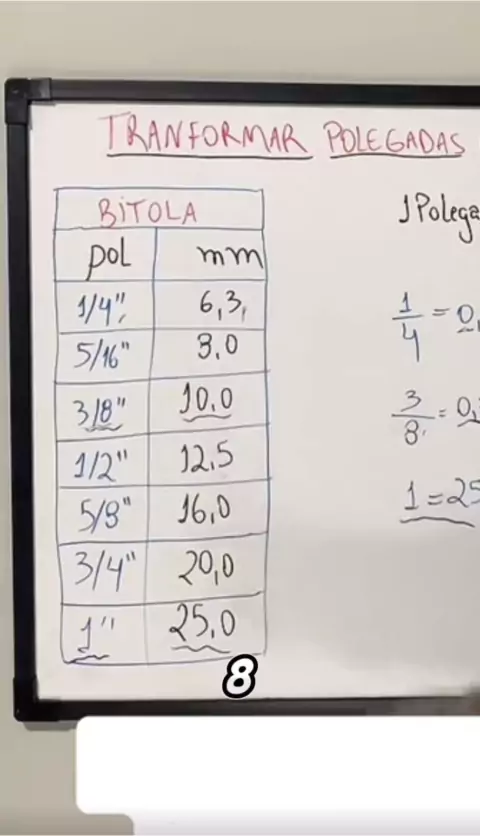 TRANFORMAR POLEGADAS
BITOLA
pol mm
1/4" 6,3
5/16" 8,0
3/8" 10,0
1/2" 12,5
5/8" 16,0
3/4" 20,0
1" 25,0
1 Polega
1/4 = 0,
3/8 = 0,
1 = 25
8